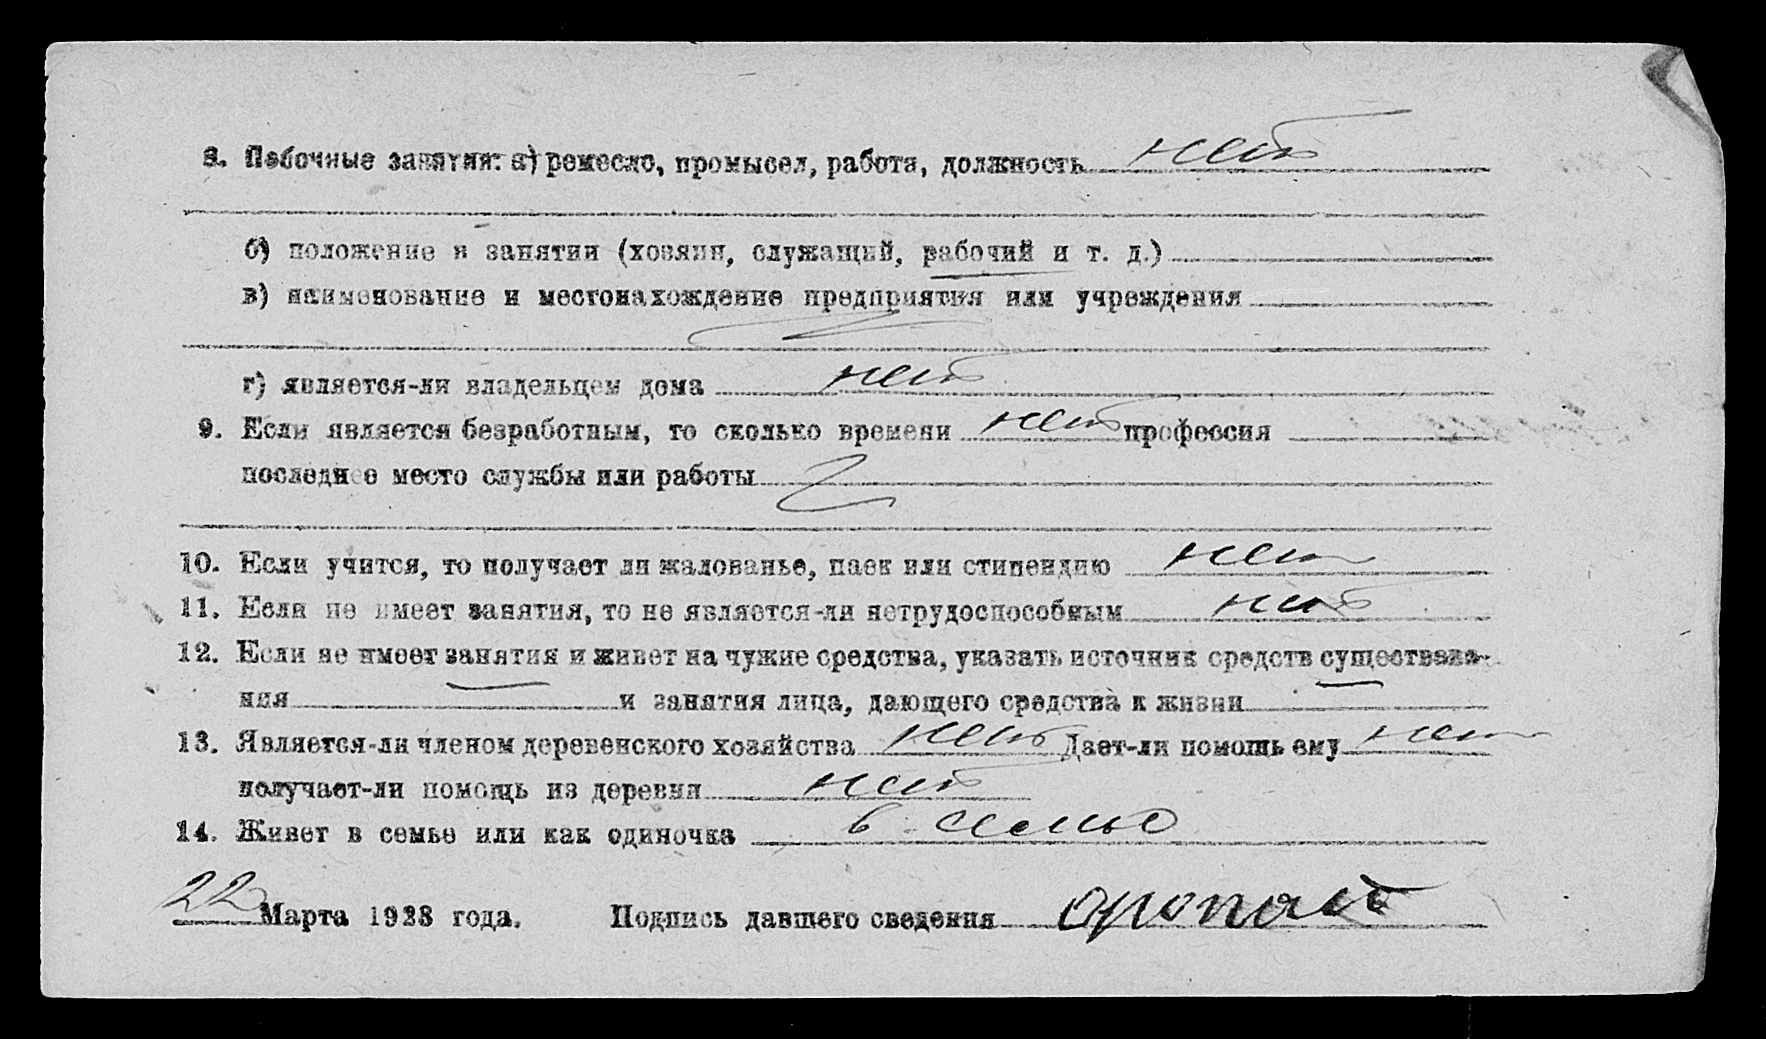 8. Побочные занятия: а) ремесло, промысел, работа, должность нет
б) положение в занятии (хозяин, служащий, рабочий и т. д.)
в) наименование и местонахождение предприятия или учреждения
г) является-ли владельцем дома нет
9. Если является безработным, то сколько времени нет профессия
последнее место службы или работы
10. Если учится, то получает ли жалованье, паек или стипендию нет
11. Если не имеет занятия, то не является-ли нетрудоспособным нет
12. Если не имеет занятия и живет на чужие средства, указать источник средств существова-
ния и занятия лица, дающего средства к жизни
13. Является-ли членом деревенского хозяйства нет Дает-ли помощь ему нет
получает-ли помощь из деревни нет
14. Живет в семье или как одиночка в семье
22 Марта 1923 года. Подпись давшего сведения